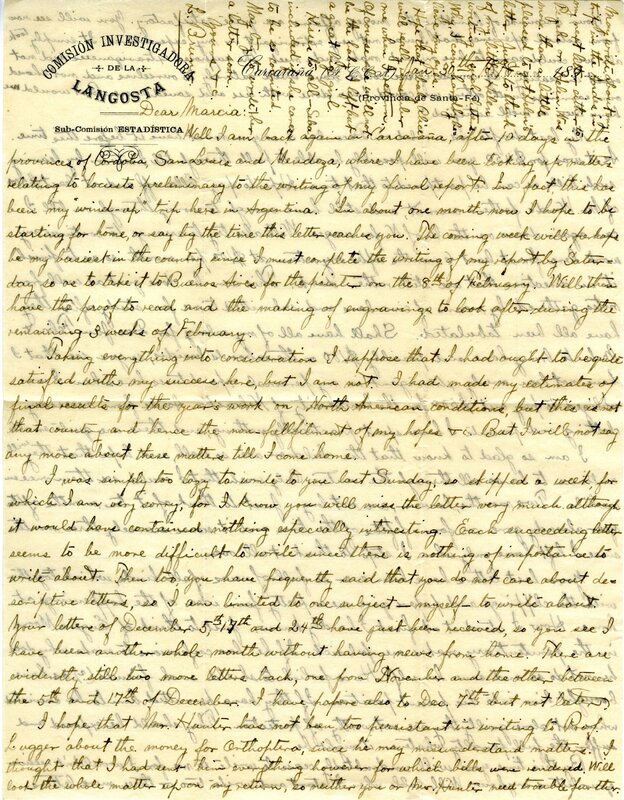 COMISIÓN INVESTIGADORA
DE LA
LANGOSTA
Sub-Comisión ESTADÍSTICA
Carcarañá
(Provincia de Santa-Fe)
188
Dear Marcia:
Well I am back again in Carcaraña, after 10 days in the
provinces of Cordoba, San Louis and Mendoza, where I have been looking up matters
relating to locusts preliminary to the writing of my final report. In fact this has
been my "wind-up" trip here in Argentina. In about one month now I hope to be
starting for home, or say by the time this letter reaches you. The coming week will perhaps
be my busiest in the country since I must complete the writing of my report by Satur-
day so as to take it to Buenos Aires for the printer on the 8th of February. Will then
have the proof to read and the making of engravings to look after during the
remaining 3 weeks of February.
Taking everything into consideration I suppose that I had ought to be quite
satisfied with my success here, but I am not. I had made my estimates of
final results for the year's work on North American conditions, but this is not
that country and hence the non-fulfillment of my hopes &c. But I will not say
any more about these matters till I come home.
I was simply too lazy to write to you last Sunday, so skipped a week for
which I am very sorry, for I know you will miss the letter very much although
it would have contained nothing especially interesting. Each succeeding letter
seems to be more difficult to write since there is nothing of importance to
write about. Then too you have frequently said that you do not care about de-
scriptive letters, so I am limited to one subject—myself—to write about.
Your letters of December 5th, 17th and 24th have just been received, so you see I
have been another whole month without having news from home. There are
evidently still two more letters back, one from November and the other between
the 5th and 17th of December. I have papers also to Dec. 7th but not later.
I hope that Mr. Hunter has not been too persistant in writing to Prof.
Lugger about the money for Orthoptera, since he may misunderstand matters. I
thought that I had sent him everything however for which bills were rendered. Will
look the whole matter up on my return, so neither you or Mr. Hunter need trouble further.